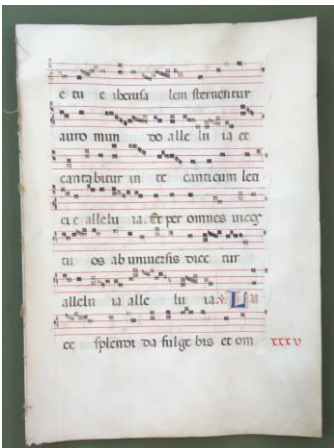 e tu e iherusa lem sternentur
auro mun do alle lu ia et
cantabitur in te canticum leti
ci e allelu ia. Et per omnes uicos
tu os ab uniuersis dice tur
allelu ia alle lu ia. V. Lu
ce splendi da fulge bis et om xxxv